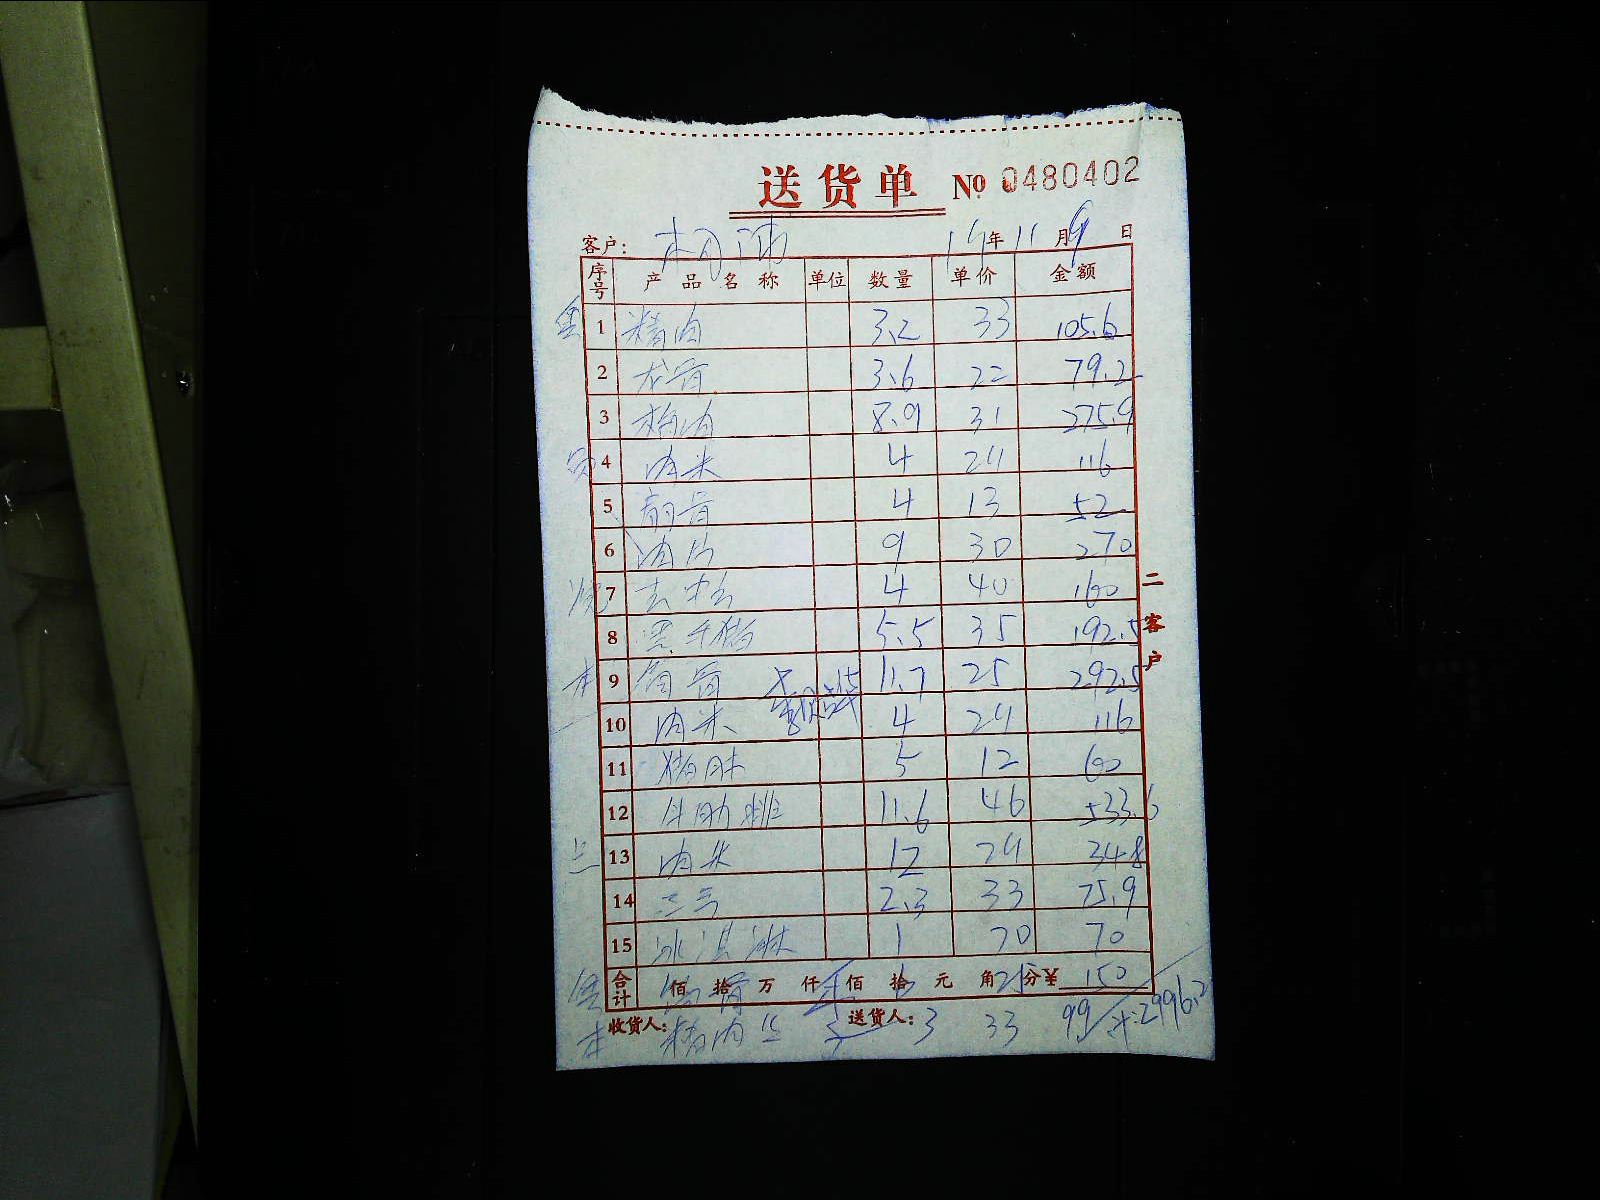 送货单 № 0480402
客户: 19年 11月 9日
序号 产品名称 单位 数量 单价 金额
1 精肉 3.2 33 105.6
2 龙骨 3.6 22 79.2
3 梅肉 8.9 31 275.9
4 肉米 4 29 116
5 前骨 4 13 52
6 肉片 9 30 270
7 4 40 160
8 黑千猪 5.5 35 192.5
9 筒骨 11.7 25 292.5
10 肉米 4 29 116
11 猪肚 5 12 60
12 牛肋排 11.6 46 533.6
13 肉米 12 29 348
14 2.3 33 75.9
15 冰淇淋 1 70 70
合计 佰拾万仟佰拾元角分¥ 骨 6 25 150
收货人: 精肉丝 送货人: 3 33 99 2996.2
二客户